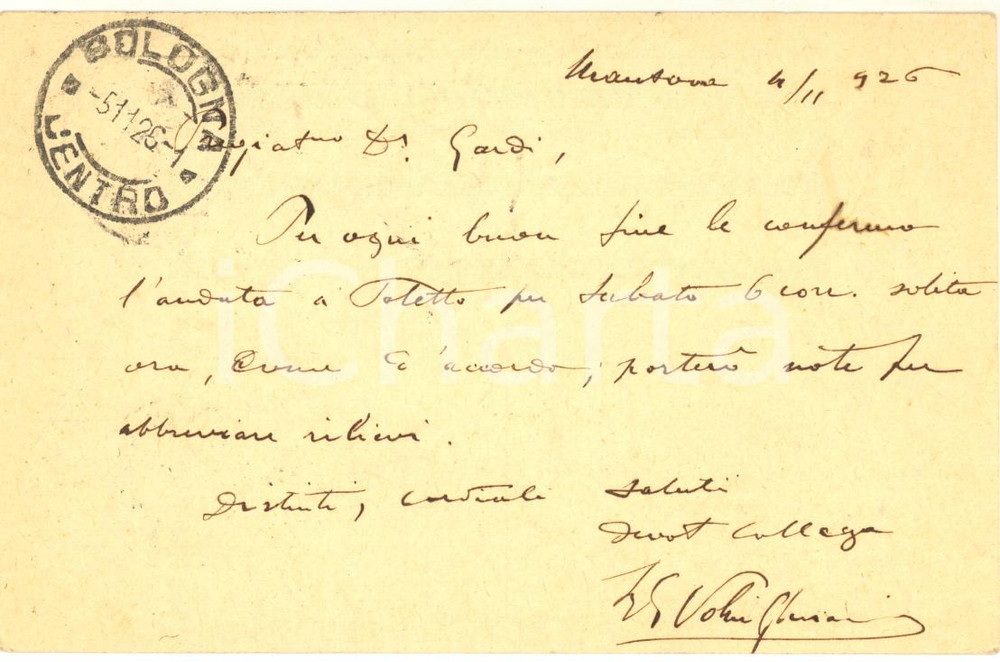 BOLOGNA
CENTRO
-5 11 26-
Mantova 4/11 926
Dr. Gardi,
Per ogni buon fine le confermo
l'andata a Poletto per Sabato 6 corr. solita
ora, come d'accordo; porterò note per
abbreviare rilievi.
Distinti, cordiali saluti
Devot collega
iCharta